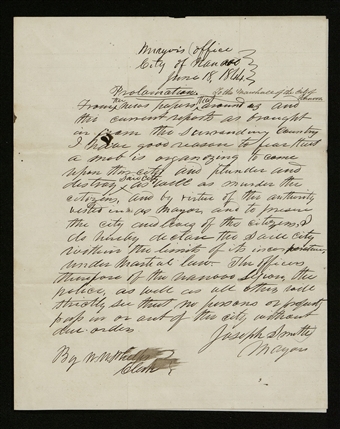 Mayor's office
City of Nauvoo
June 18, 1844
Proclamation To the Marshal of the City of Nauvoo
From the news papers around us and
the current reports as brought
in from the surrounding Country
I have good reason to fear that
a mob is organizing to come
upon this city and plunder and
destroy said city as well as murder the
citizens, and by virtue of the authority
vested in me as Mayor, and to preserve
the city and lives of the citizens, I
do hereby declare the said city
within the limits of its incorporation
under Martial law. The officers
therefore of the Nauvoo Legion, the
police, as well as all others will
strictly see that no persons or property
pass in or out of the city without
due orders.
Joseph Smith
Mayor
By W. W. Phelps
Clerk